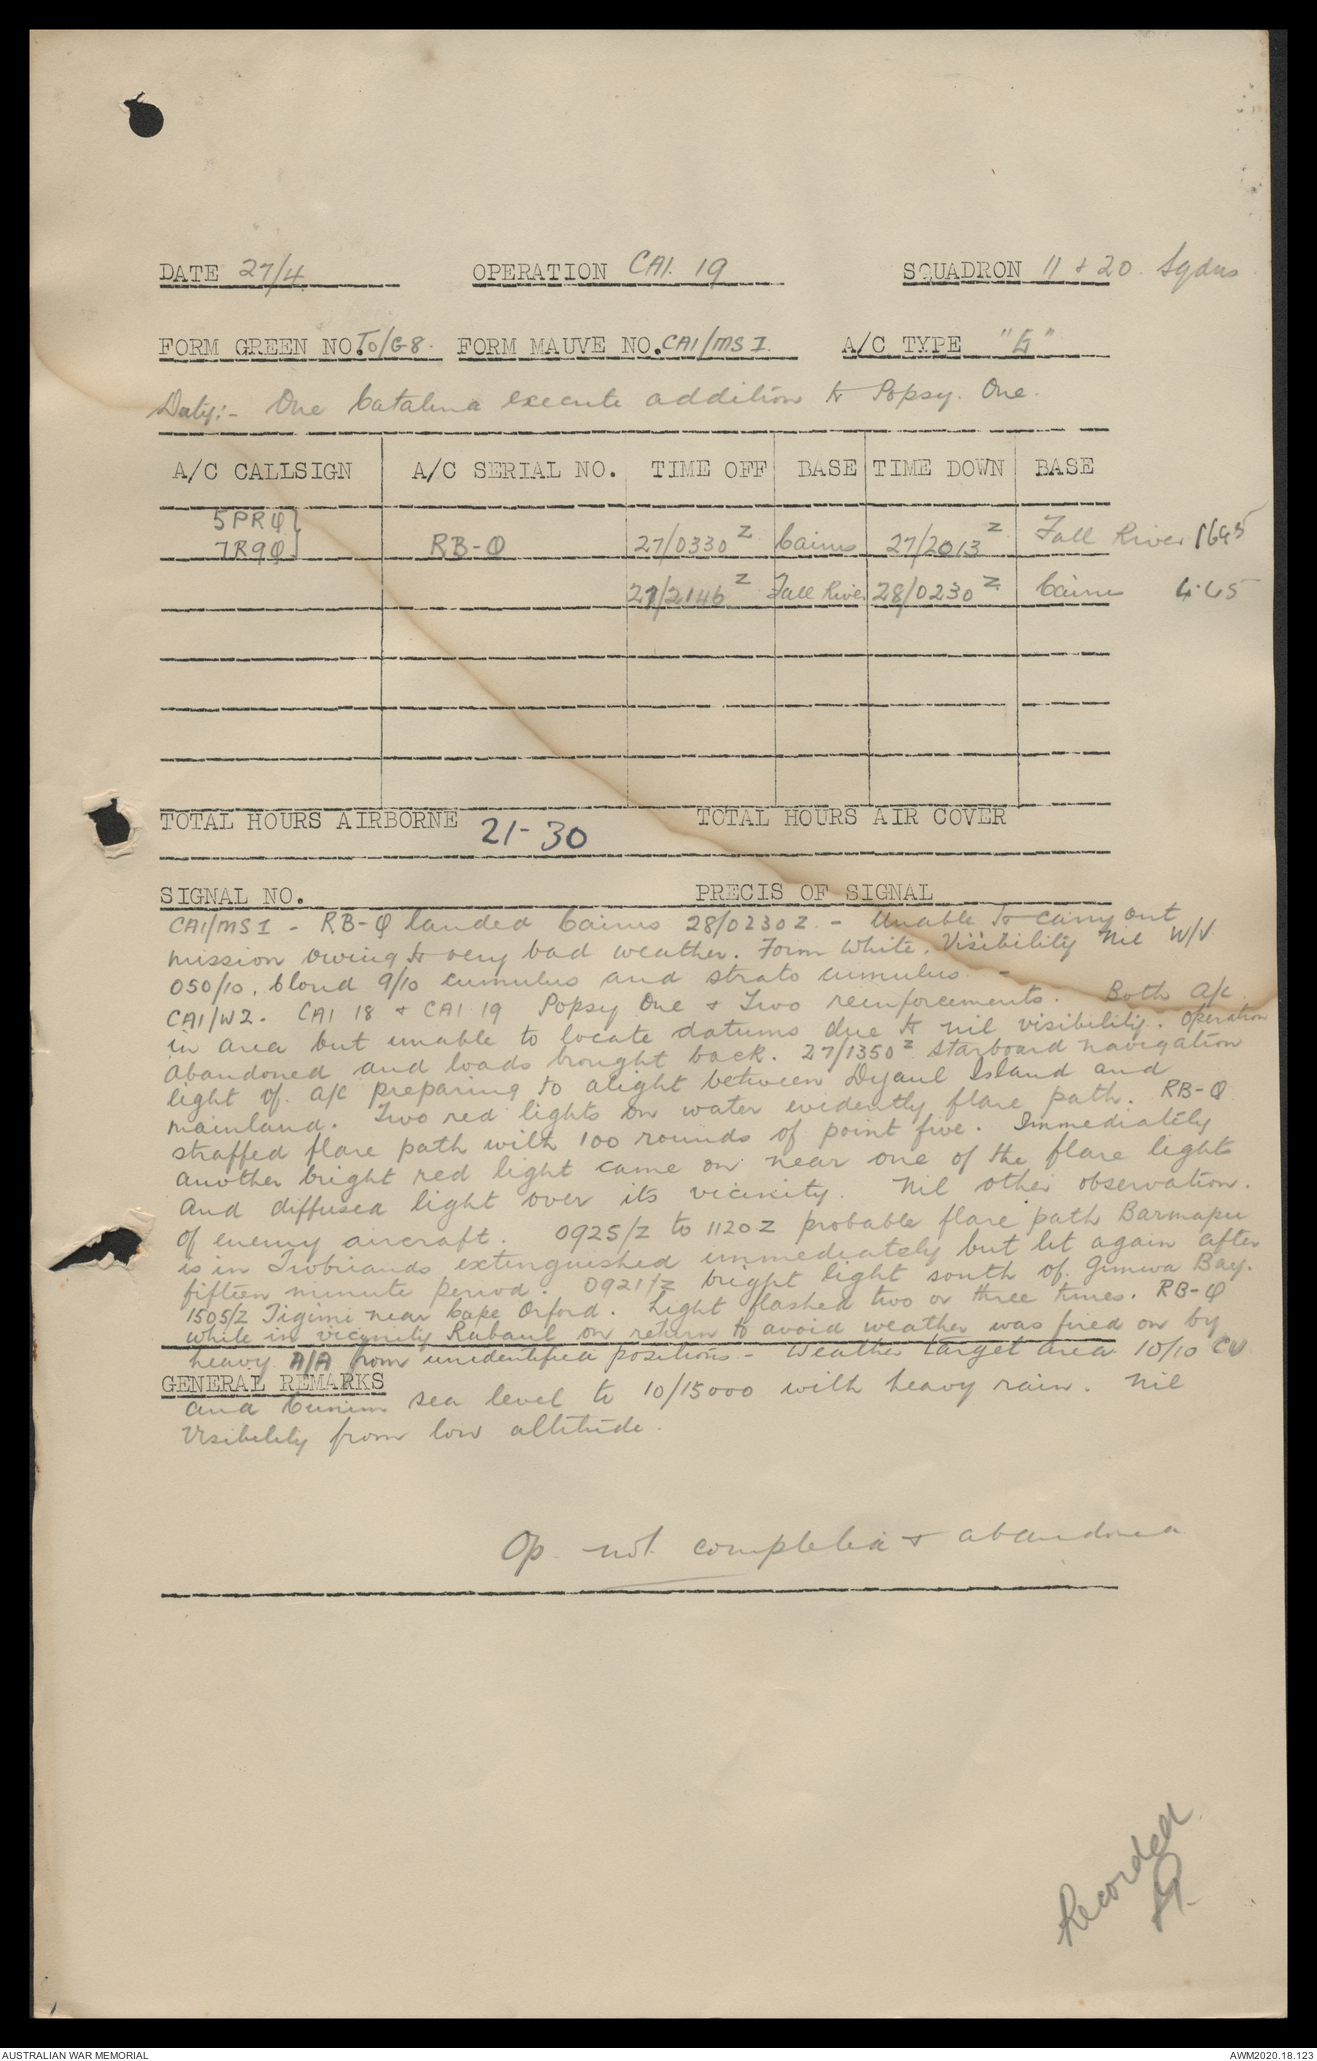 DATE 27/4 OPERATION CAI. 19 SQUADRON 11 & 20 Sqdns
FORM GREEN NO. TO/G8. FORM MAUVE NO. CAI/MS I. A/C TYPE "G"
Duty:- One Catalina execute addition to Popsy. One.
A/C CALLSIGN A/C SERIAL NO. TIME OFF BASE TIME DOWN BASE
5PRQ}
7R9Q} RB-Q 27/0330 Z Cairns 27/2013 Z Fall River
27/2146 Z Fall River 28/0230 Z Cairns
TOTAL HOURS AIRBORNE 21-30 TOTAL HOURS AIR COVER
SIGNAL NO. PRECIS OF SIGNAL
CAI/MS I - RB-Q landed Cairns 28/0230Z - Unable to carry out
mission owing to very bad weather. Form White. Visibility Nil W/V
050/10. Cloud 9/10 cumulus and strato cumulus -
CAI/W2. CAI 18 & CAI 19 Popsy One & Two reinforcements. Both A/c
in area but unable to locate datums due to nil visibility. Operation
abandoned and loads brought back. 27/1350 Z starboard navigation
light of A/c preparing to alight between Dyaul Island and
mainland. Two red lights on water evidently flare path. RB-Q
straffed flare path with 100 rounds of point five. Immediately
another bright red light came on near one of the flare lights
and diffused light over its vicinity. Nil other observation.
of enemy aircraft. 0925/Z to 1120Z probable flare path Barmapu
is in Trobriands extinguished immediately but lit again after
fifteen minute period. 0921/Z bright light south of Gimwa Bay.
1505/Z Tigimi near Cape Orford. Light flashed two or three times. RB-Q
while in vicinity Rabaul on return to avoid weather was fired on by
heavy A/A from unidentified positions - Weather target area 10/10 CU
GENERAL REMARKS
and Cunim sea level to 10/15000 with heavy rain. Nil
Visibility from low altitude.
Op. not completed & abandoned
Recorded
AUSTRALIAN WAR MEMORIAL AWM2020.18.123